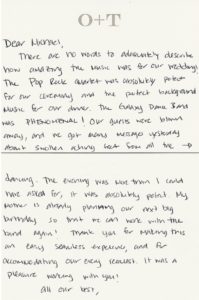 O+T
Dear Michael,
There are no words to adequately describe
how amazing the music was for our wedding!
The Pop Rock Quartet was absolutely perfect
for our ceremony and the perfect background
music for our dinner. The Galaxy Dance Band
was PHENOMENAL! Our guests were blown
away, and we got many messages yesterday
about swollen aching feet from all the →
dancing. The evening was more than I could
have asked for, it was absolutely perfect. My
mother is already planning our next big
birthday so that we can work with the
band again! Thank you for making this
an easy, seamless experience, and for
accommodating our every request. It was a
pleasure working with you!
All our best,